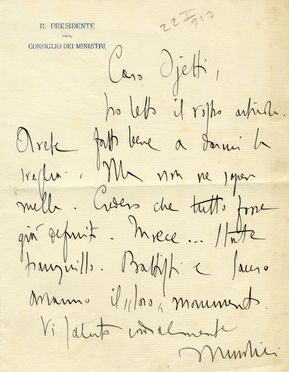 22 I 913
IL PRESIDENTE
DEL
CONSIGLIO DEI MINISTRI
Caro Ojetti,
ho letto il vostro articolo.
Avete fatto bene a darmi la
sveglia. Ma non ne sapevo
nulla. Credevo che tutto fosse
già definito. Invece... State
tranquillo. Battisti e Sauro
avranno il "loro" monumento.
Vi saluto cordialmente
Mussolini